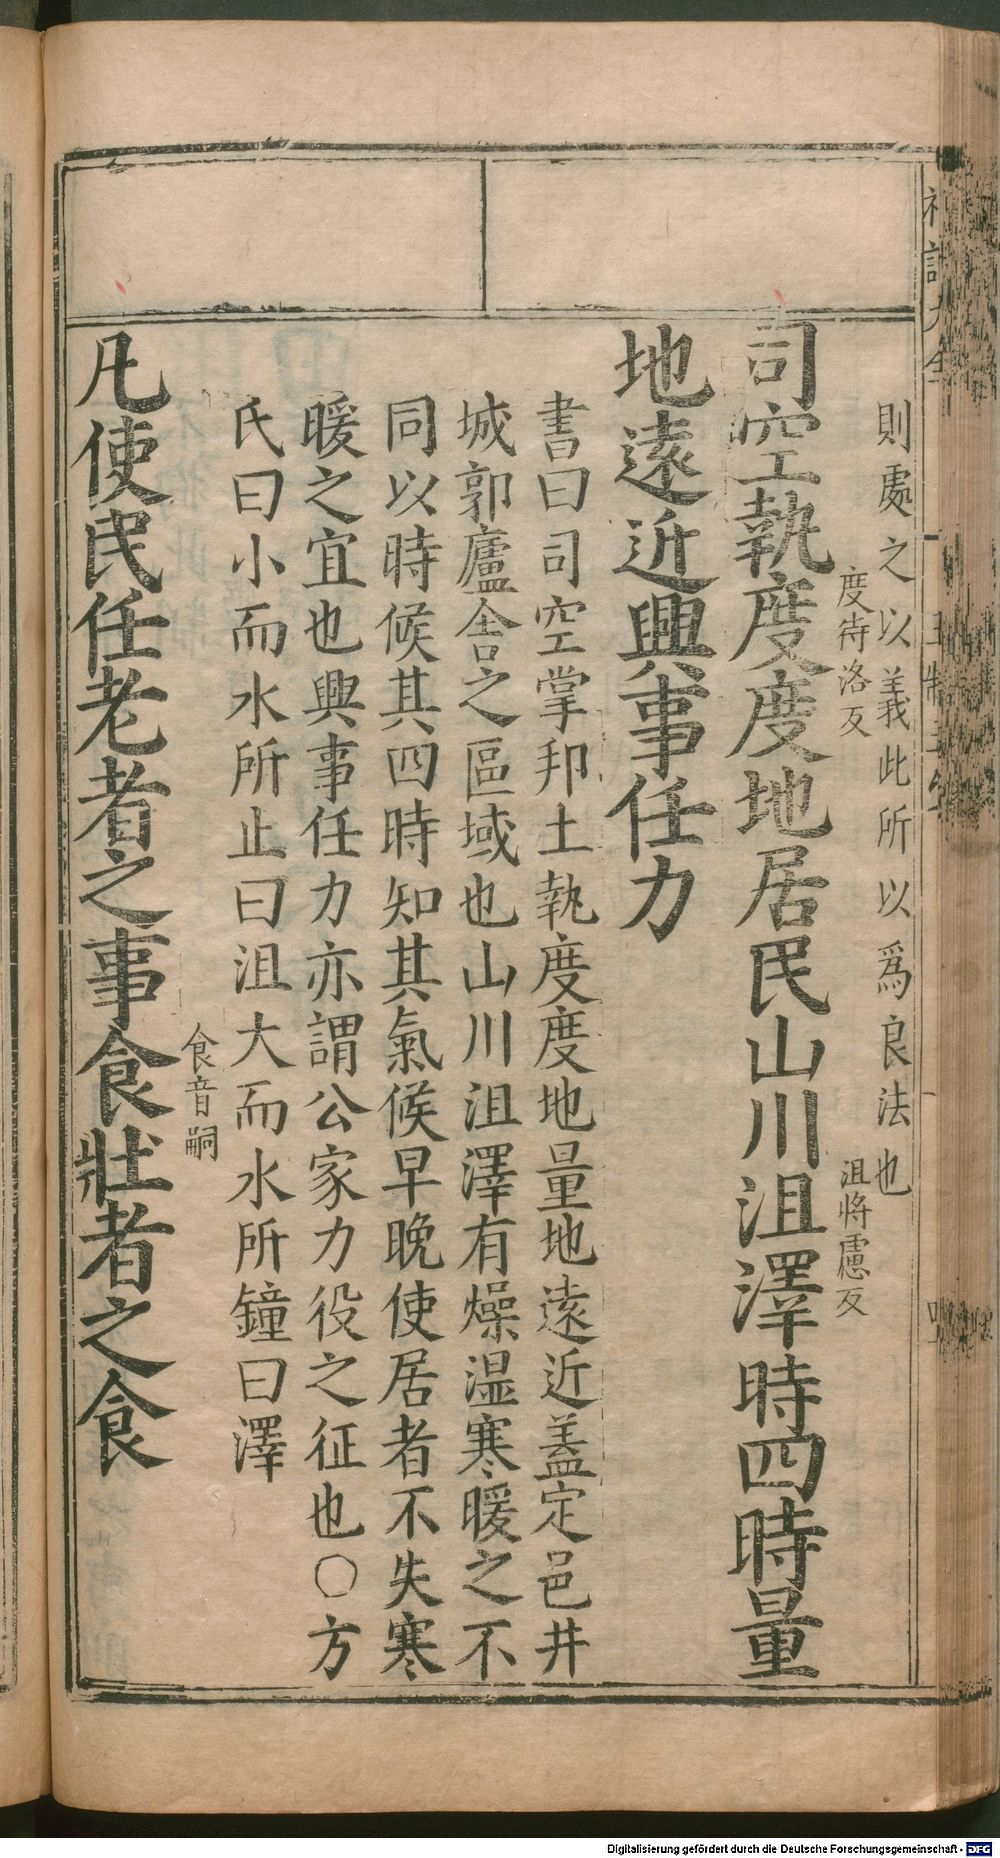 則處之以義此所以爲良法也
度待洛反
沮將慮反
司空執度度地居民山川沮澤時四時量
地遠近興事任力
書曰司空掌邦土執度度地量地遠近蓋定邑井
城郭廬舍之區域也山川沮澤有燥濕寒暖之不
同以時候其四時知其氣候早晚使居者不失寒
暖之宜也興事任力亦謂公家力役之征也○方
氏曰小而水所止曰沮大而水所鐘曰澤
食音嗣
凡使民任老者之事食壯者之食
Digitalisierung gefördert durch die Deutsche Forschungsgemeinschaft - DFG